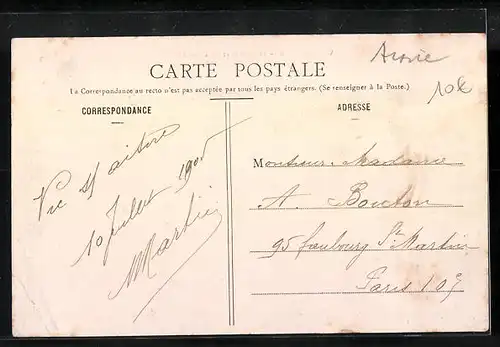 CARTE POSTALE
La Correspondance au recto n'est pas acceptée par tous les pays étrangers. (Se renseigner à la Poste.)
CORRESPONDANCE
ADRESSE
10€
10 Juillet 1905
Martin
Monsieur. Madame
A. Bouton
95 faubourg St Martin
Paris 10e